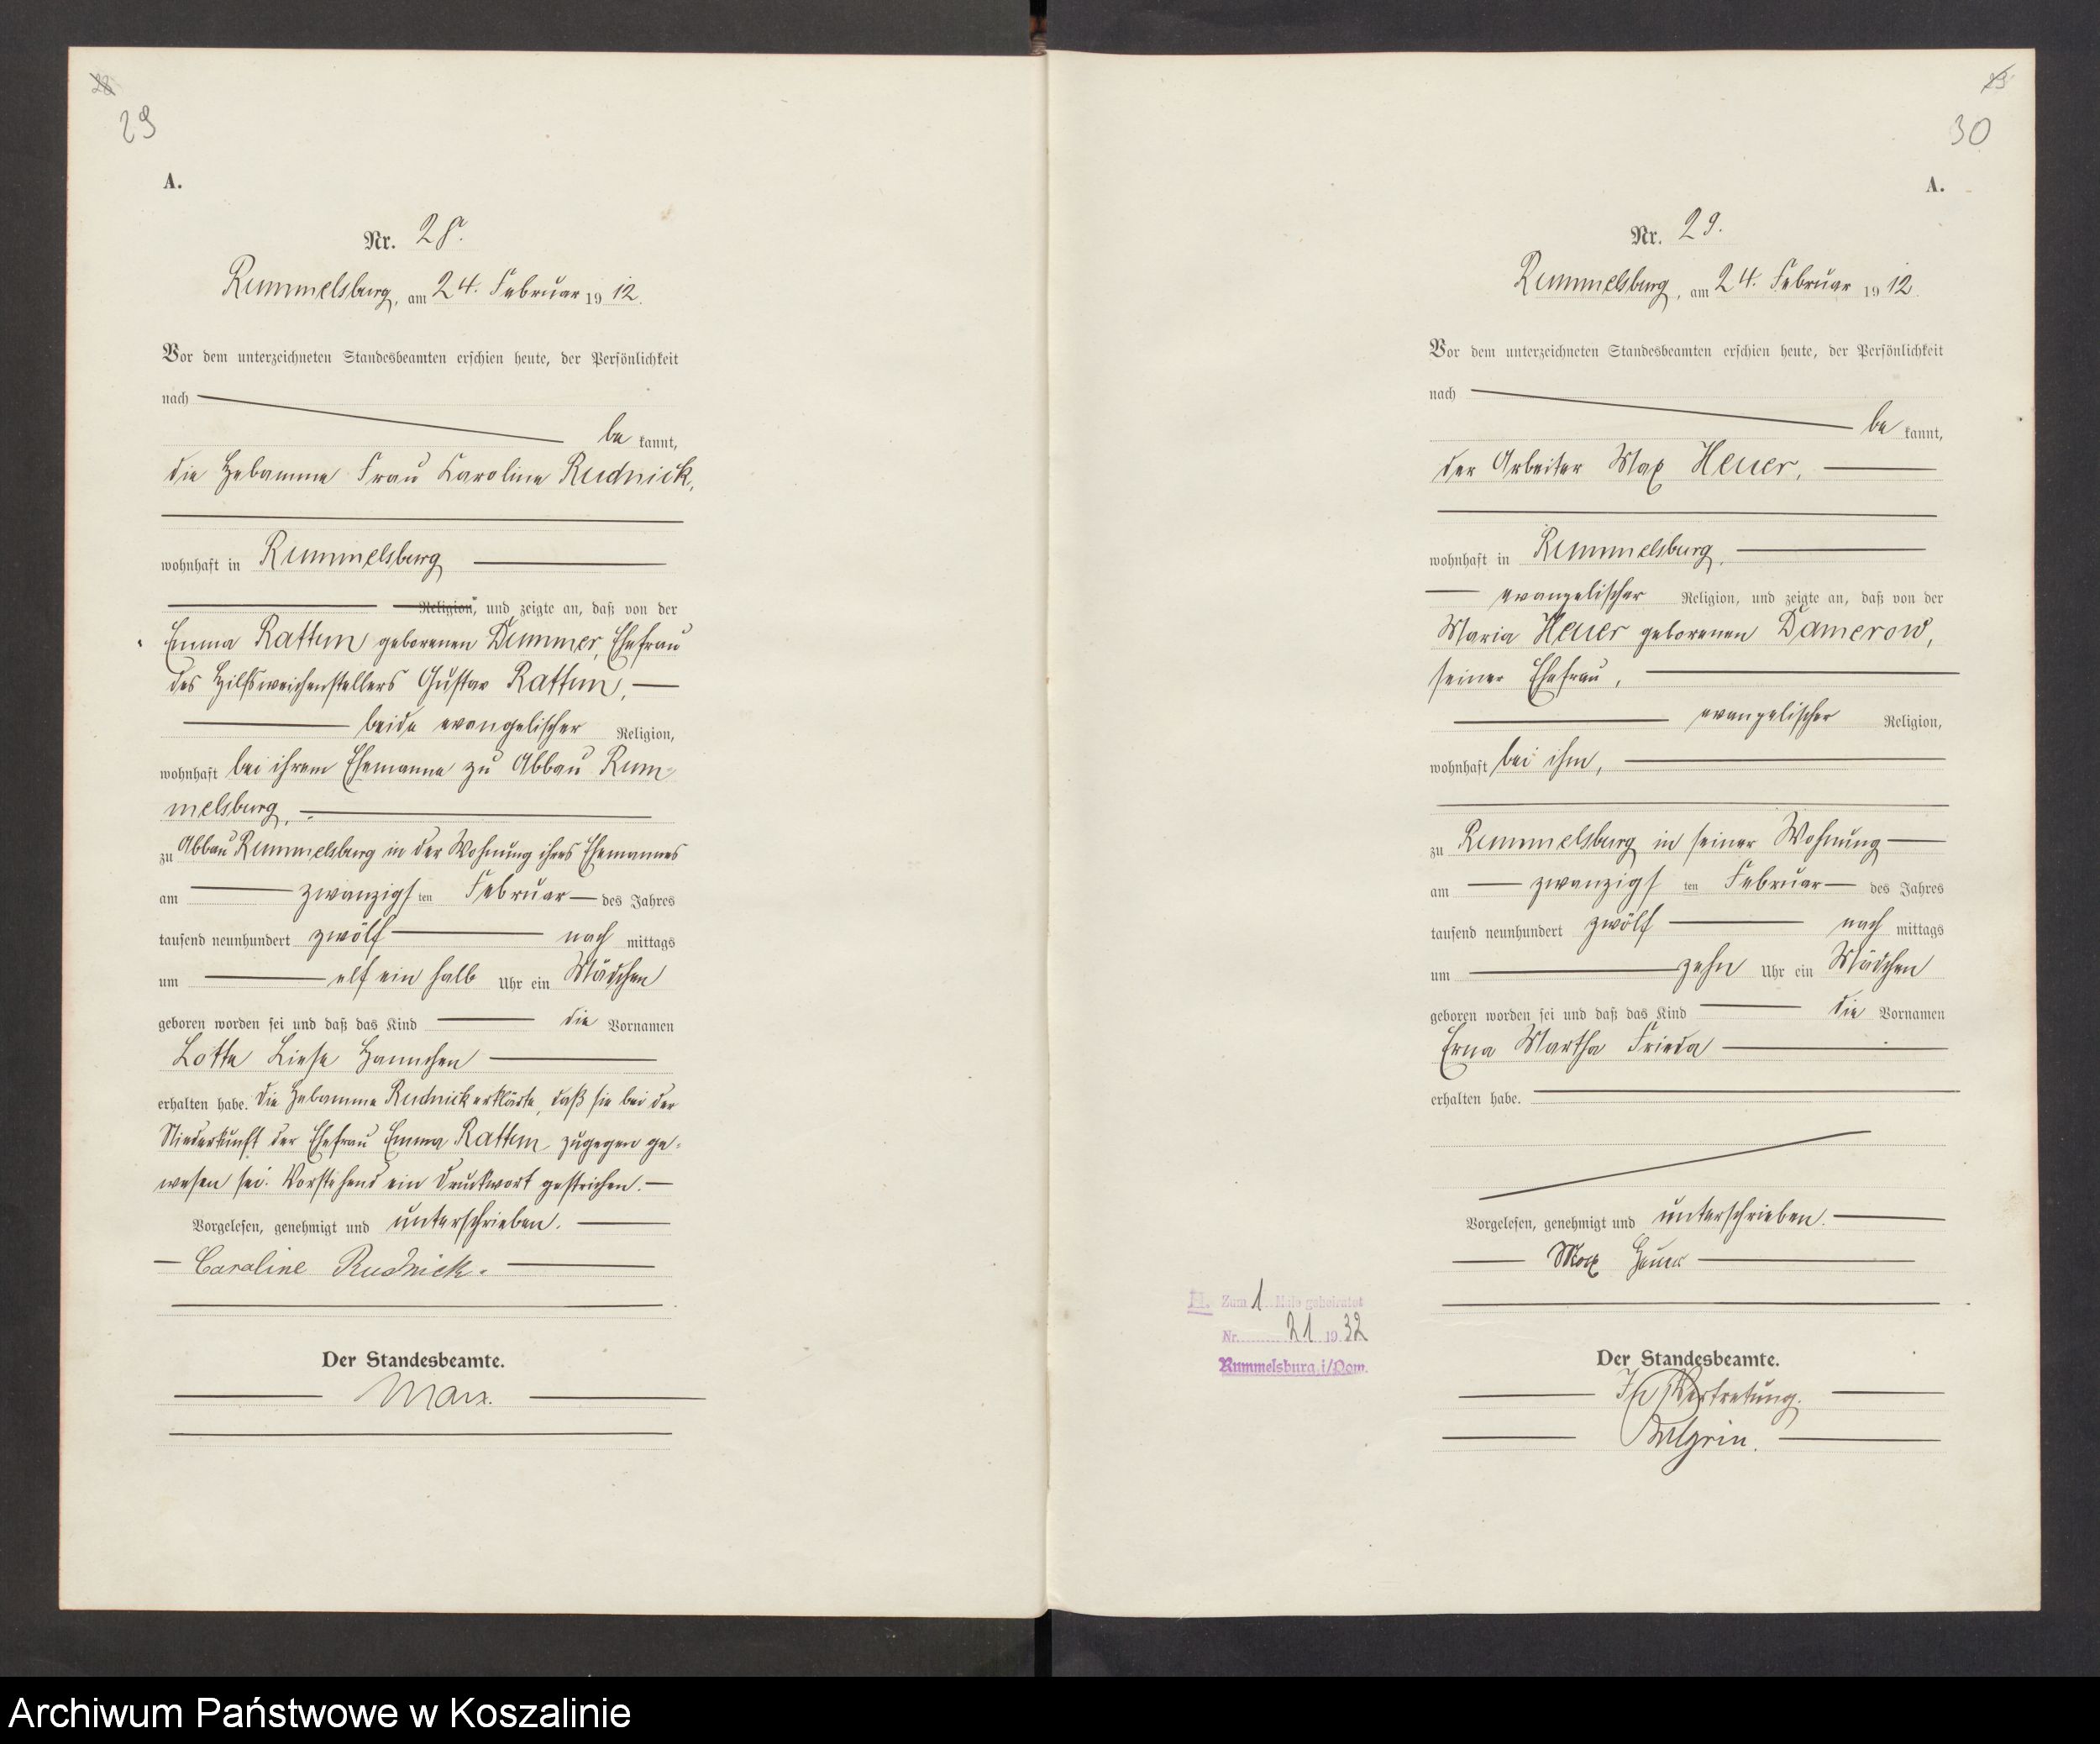 28
29
A.
Nr. 28.
Rummelsburg, am 24. Februar 1912.
Vor dem unterzeichneten Standesbeamten erschien heute, der Persönlichkeit
nach
be kannt,
die Hebamme Frau Karoline Rudnick,
wohnhaft in Rummelsburg
Religion, und zeigte an, daß von der
Emma Rattun geborenen Dummer, Ehefrau
des Hilfsweichenstellers Gustav Rattun,
beide evangelischer Religion,
wohnhaft bei ihrem Ehemanne zu Abbau Rum=
melsburg,
zu Abbau Rummelsburg in der Wohnung ihres Ehemannes
am zwanzigsten Februar des Jahres
tausend neunhundert zwölf nach mittags
um elf ein halb Uhr ein Mädchen
geboren worden sei und daß das Kind die Vornamen
Lotte Liese Hannchen
erhalten habe. Die Hebamme Rudnick erklärte, daß sie bei der
Niederkunft der Ehefrau Emma Rattun zugegen ge=
wesen sei. Vorstehend ein Druckwort gestrichen.
Vorgelesen, genehmigt und unterschrieben.
Caroline Rudnick.
Der Standesbeamte.
Marx.
29
30
A.
Nr. 29.
Rummelsburg, am 24. Februar 1912.
Vor dem unterzeichneten Standesbeamten erschien heute, der Persönlichkeit
nach
be kannt,
der Arbeiter Max Heuer,
wohnhaft in Rummelsburg,
evangelischer Religion, und zeigte an, daß von der
Maria Heuer geborenen Damerow,
seiner Ehefrau,
evangelischer Religion,
wohnhaft bei ihm,
zu Rummelsburg in seiner Wohnung
am zwanzigsten Februar des Jahres
tausend neunhundert zwölf nach mittags
um zehn Uhr ein Mädchen
geboren worden sei und daß das Kind die Vornamen
Erna Martha Frieda
erhalten habe.
Vorgelesen, genehmigt und unterschrieben.
Max Heuer
H. Zum 1 Male geheiratet
Nr. 21 1932
Rummelsburg i/Pom.
Der Standesbeamte.
In Vertretung.
Archiwum Państwowe w Koszalinie